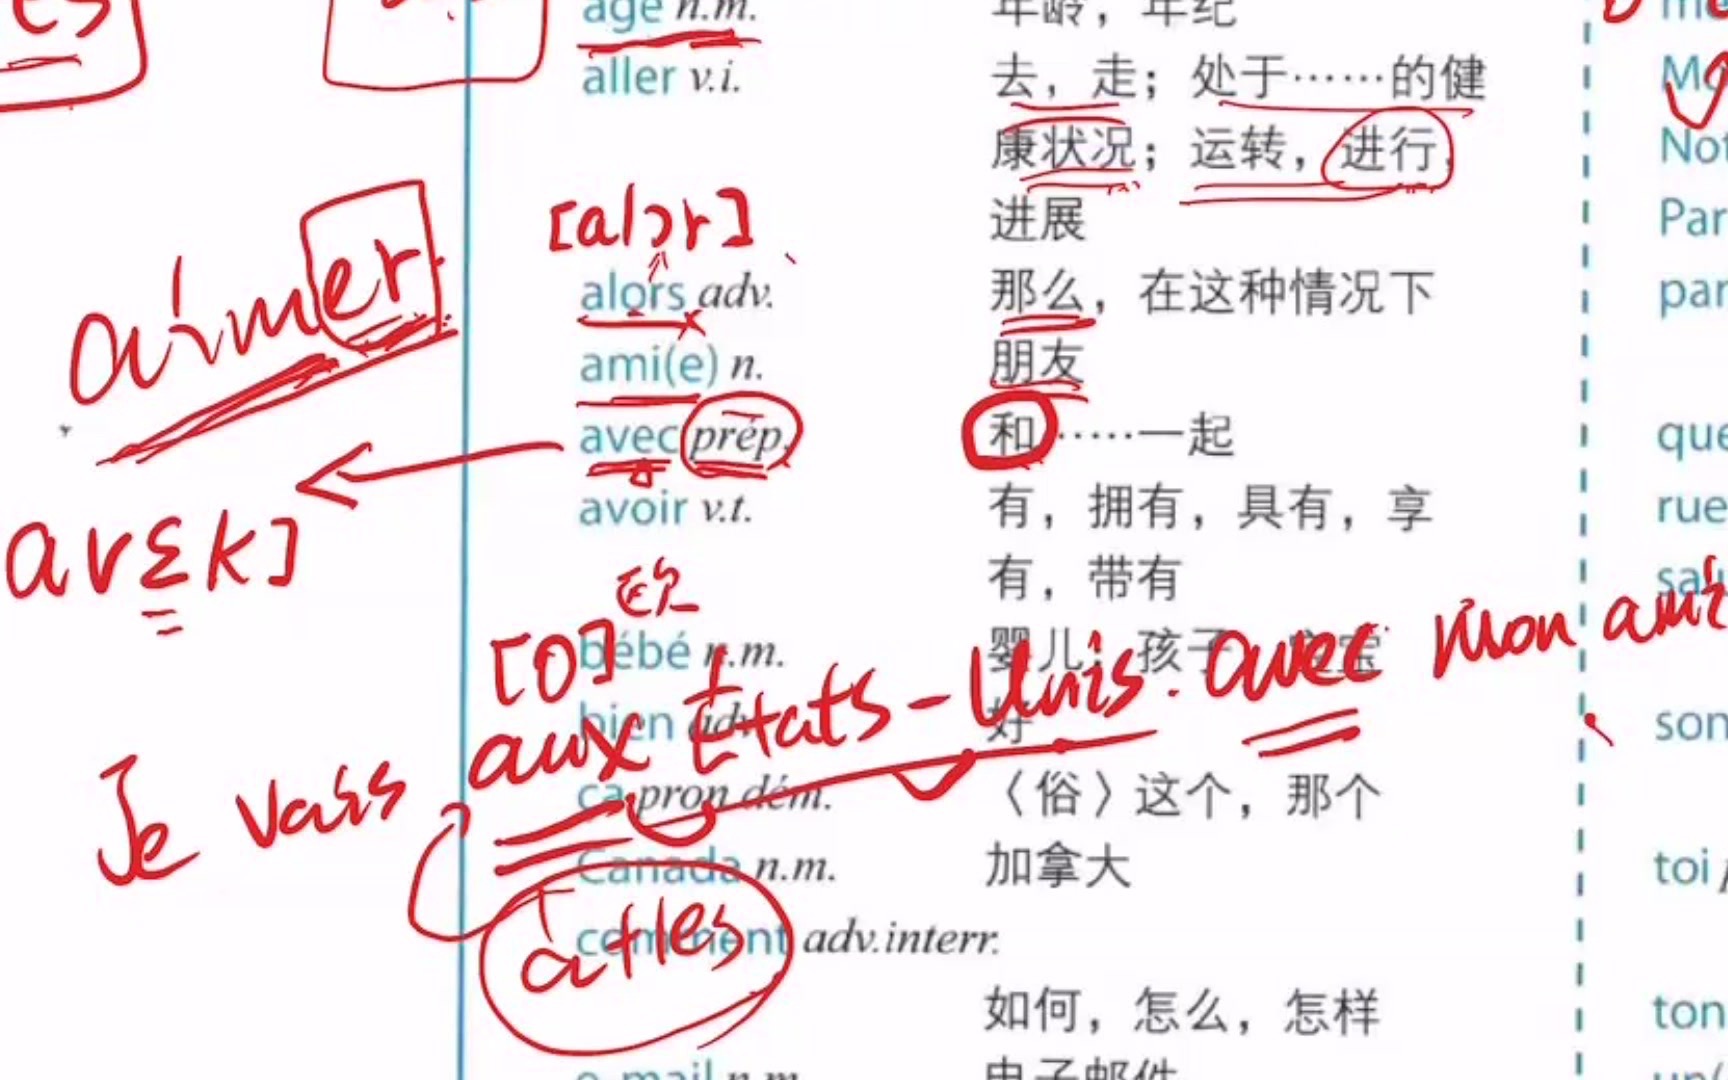 es
âge n.m. 年龄，年纪
aller v.i. 去，走；处于……的健
康状况；运转，进行，
Not
进展
Par
[alɔr]
aimer
alors adv. 那么，在这种情况下
par
ami(e) n. 朋友
avec prép. 和……一起
que
avoir v.t. 有，拥有，具有，享
rue
avɛk]
有，带有
欧
[o]
bébé n.m. 婴儿；孩子
bien adv. 好
son
Je vais aux États-Unis. avec mon ami
ça pron dém. 〈俗〉这个，那个
Canada n.m. 加拿大
toi
à+les
comment adv.interr.
如何，怎么，怎样
ton
e-mail n.m. 电子邮件